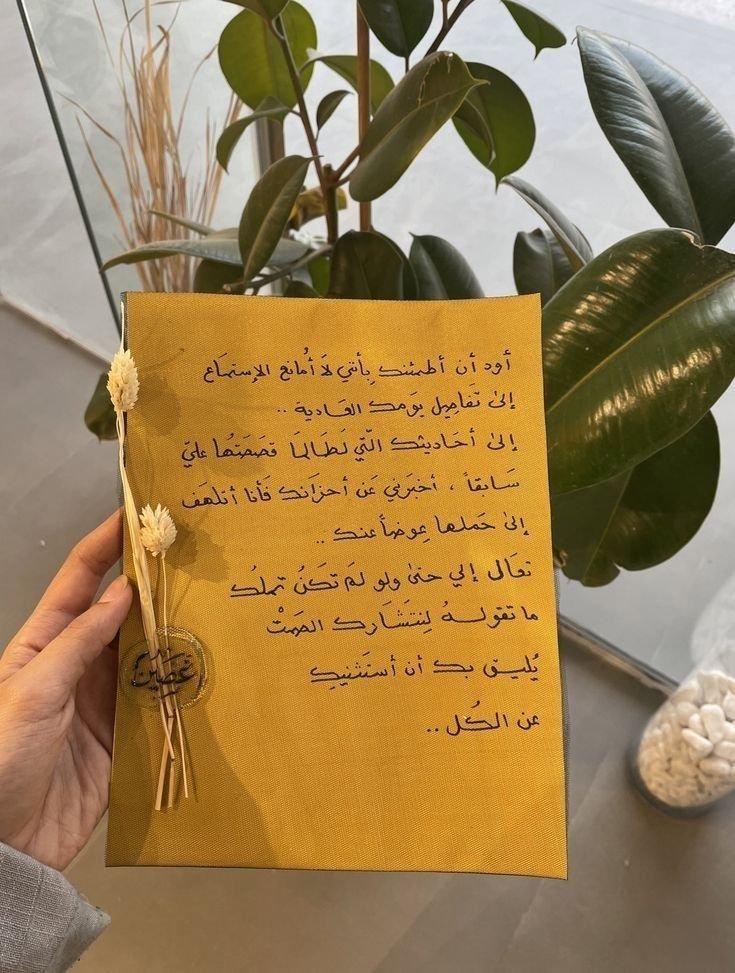 أود أن أطمئنك بِأنني لَا أُمانع الإستمَاع
إلىٰ تَفَاصِيل يَومك العَادية ..
إلىٰ أحَاديثك الّتي لَطَالمَا قصَصتُها عليّ
سَابقاً ، أخبرني عَن أحزَانك فَأنا أتلهَف
إلىٰ حَملها عِوضاً عنك ..
تعَال إلي حتىٰ ولو لَم تكَنُ تملُك
ما تقولهُ لِنتشَارك الصَمتْ
يُليق بك أن أستَثنيكِ
عن الكُل ..
غصين